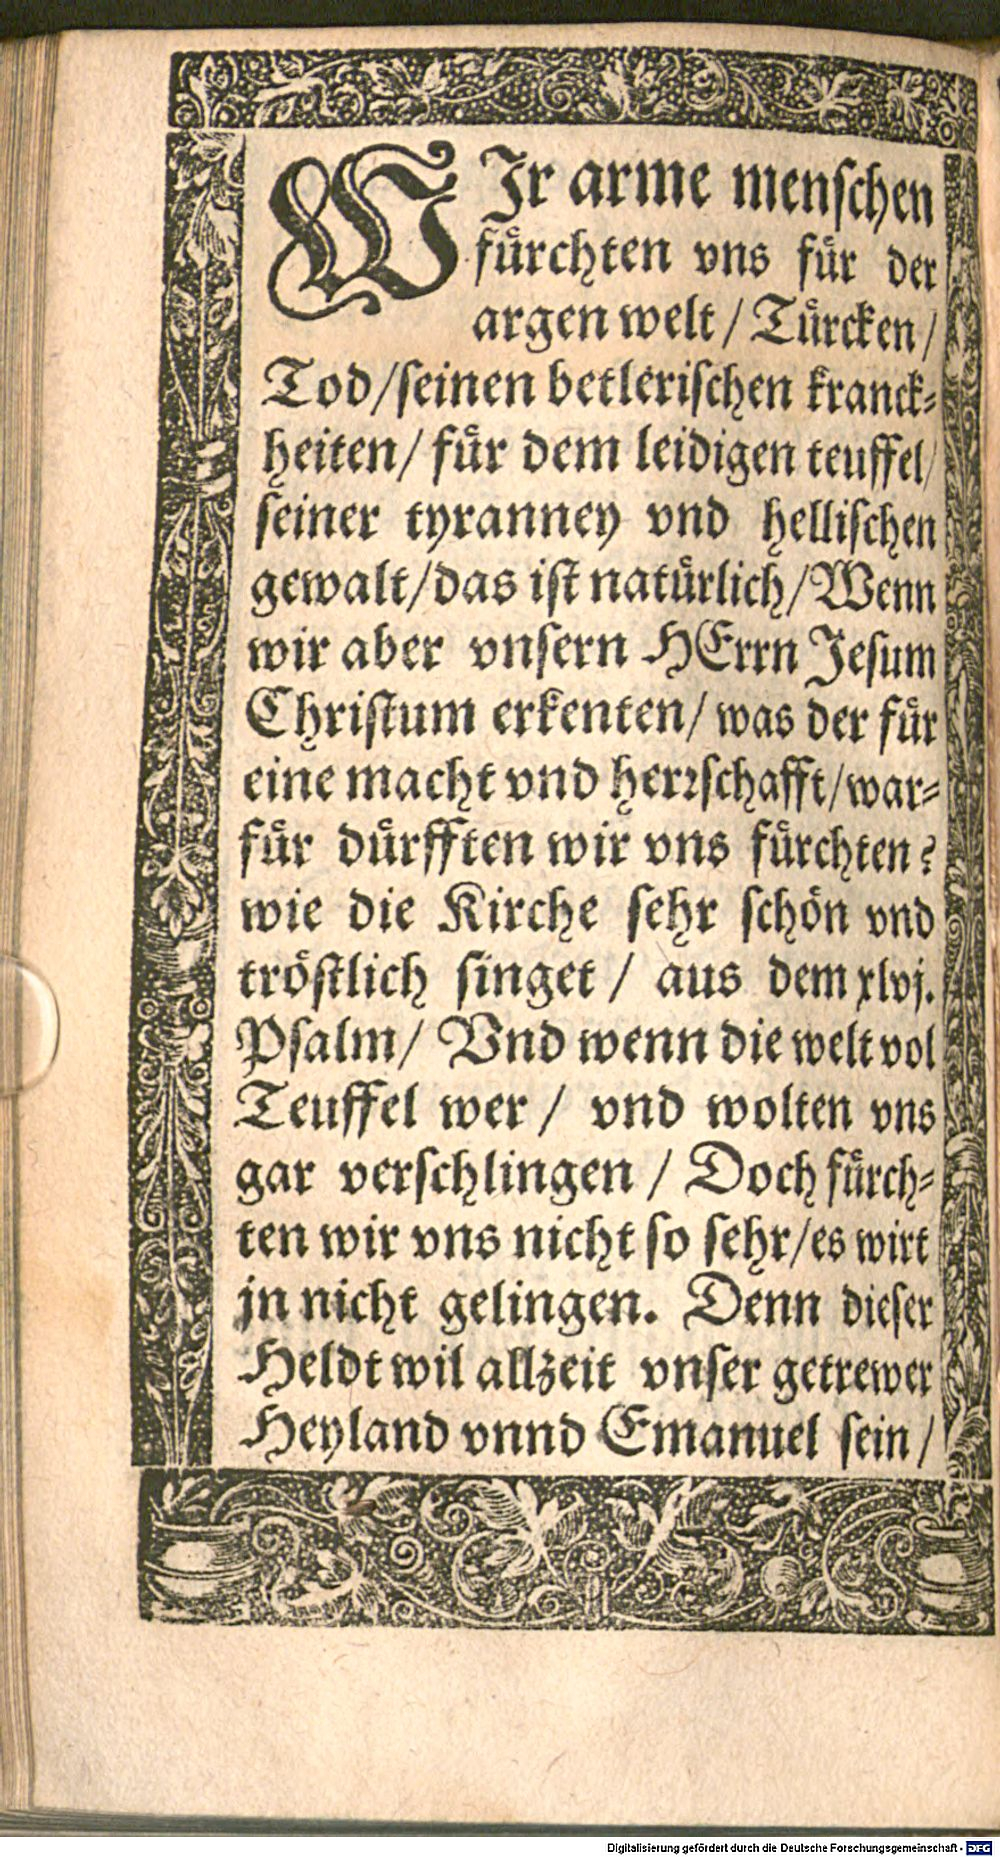 WIr arme menſchen
fuͤrchten vns fuͤr der
argen welt / Tuͤrcken /
Tod/ſeinen betleriſchen kranck⸗
heiten/ fuͤr dem leidigen teuffel/
ſeiner tyranney vnd helliſchen
gewalt/das iſt natuͤrlich/Wenn
wir aber vnſern HErrn Jeſum
Chriſtum erkenten/ was der fuͤr
eine macht vnd herꝛſchafft/war⸗
fuͤr duͤrfften wir vns fuͤrchten?
wie die Kirche ſehr ſchoͤn vnd
troͤſtlich ſinget / aus dem xlvj.
Pſalm/ Vnd wenn die welt vol
Teuffel wer / vnd wolten vns
gar verſchlingen / Doch fuͤrch⸗
ten wir vns nicht ſo ſehr/es wirt
jn nicht gelingen. Denn dieſer
Heldt wil allzeit vnſer getrewer
Heyland vnnd Emanuel ſein /
Digitalisierung gefördert durch die Deutsche Forschungsgemeinschaft - DFG